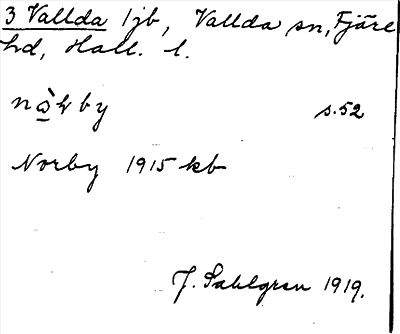 3 Vallda 1jb, Vallda sn, Fjäre
hd, Hall. l.
by s.52
Norby 1915 kb
J. Sahlgren 1919.